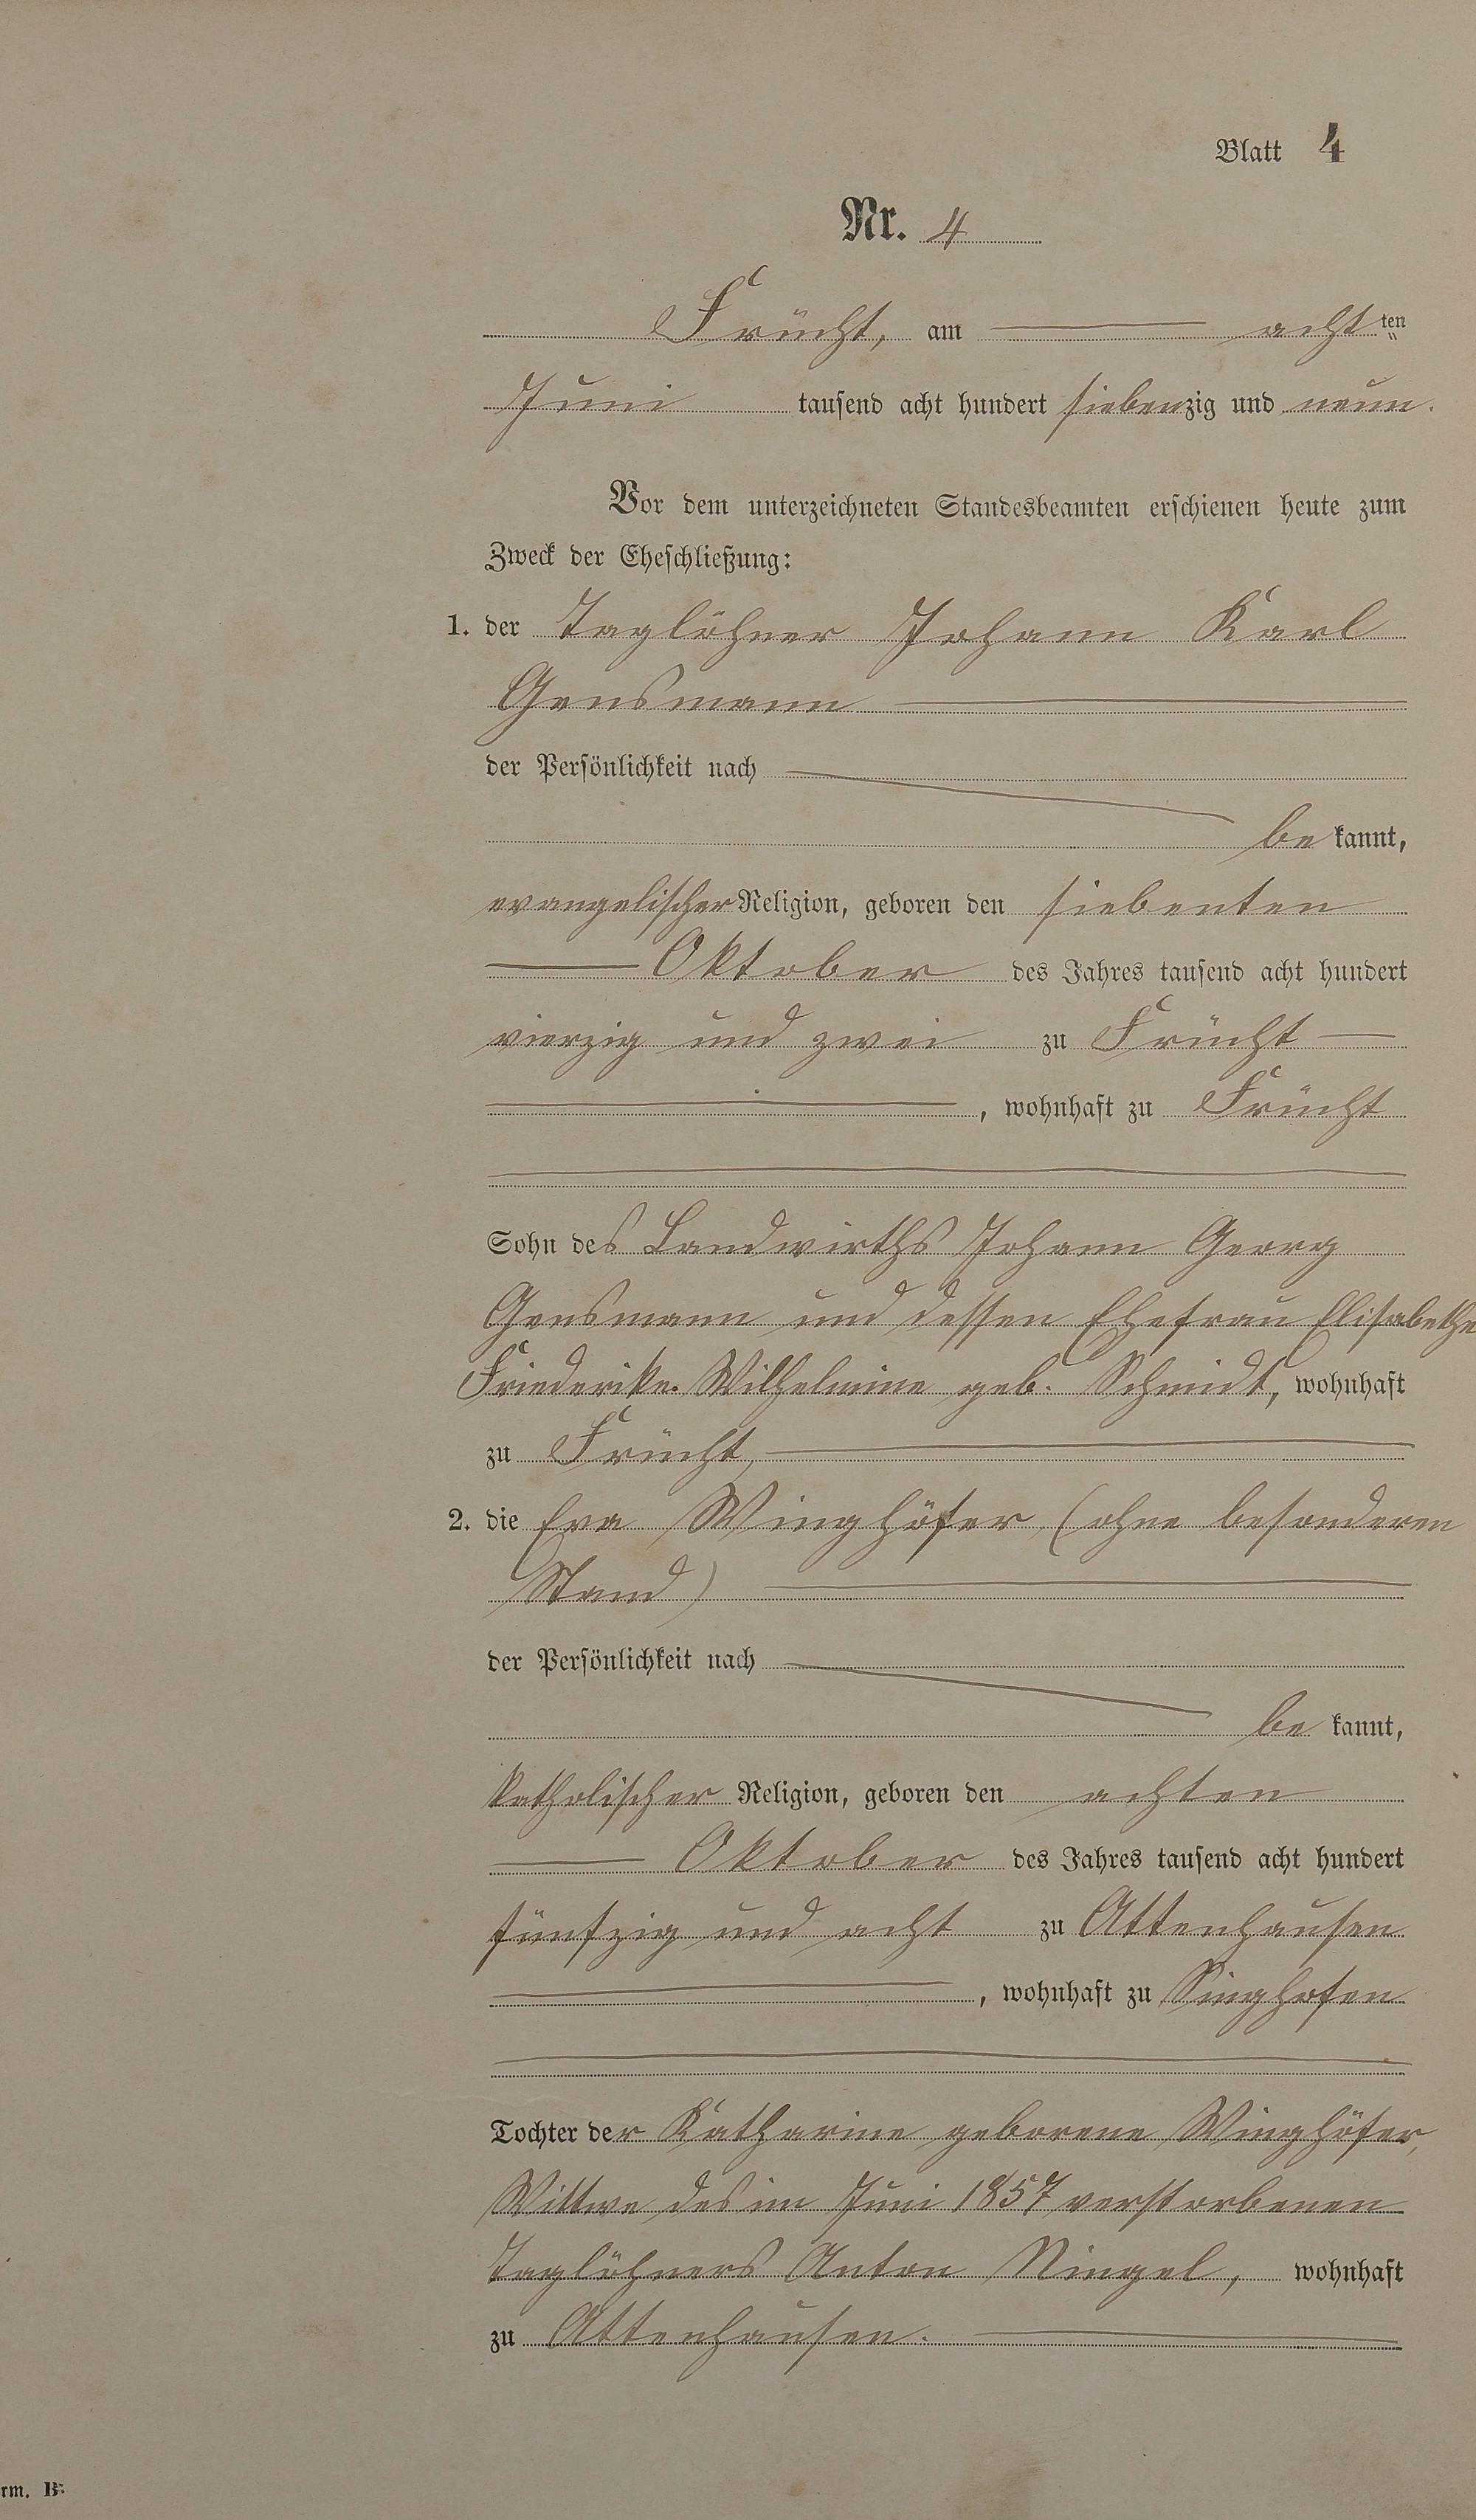 Blatt 4
Nr. 4
Frücht, am achtten
Juni tausend acht hundert siebenzig und neun.
Vor dem unterzeichneten Standesbeamten erschienen heute zum
Zweck der Eheschließung:
1. der Taglöhner Johann Karl
Gensmann
der Persönlichkeit nach
bekannt,
evangelischer Religion, geboren den siebenten
Oktober des Jahres tausend acht hundert
vierzig und zwei zu Frücht
, wohnhaft zu Frücht
Sohn des Landwirths Johann Georg
Gensmann und dessen Ehefrau Elisabethe
Friederike Wilhelmine geb. Schmidt, wohnhaft
zu Frücht,
2. die Eva Winghöfer (ohne besonderen
Stand)
der Persönlichkeit nach
bekannt,
katholischer Religion, geboren den achten
Oktober des Jahres tausend acht hundert
fünfzig und acht zu Attenhausen
, wohnhaft zu Singhofen
Tochter der Katharine geborene Winghöfer,
Wittwe des im Juni 1857 verstorbenen
Taglöhners Anton Ningel, wohnhaft
zu Attenhausen.
rm. B.